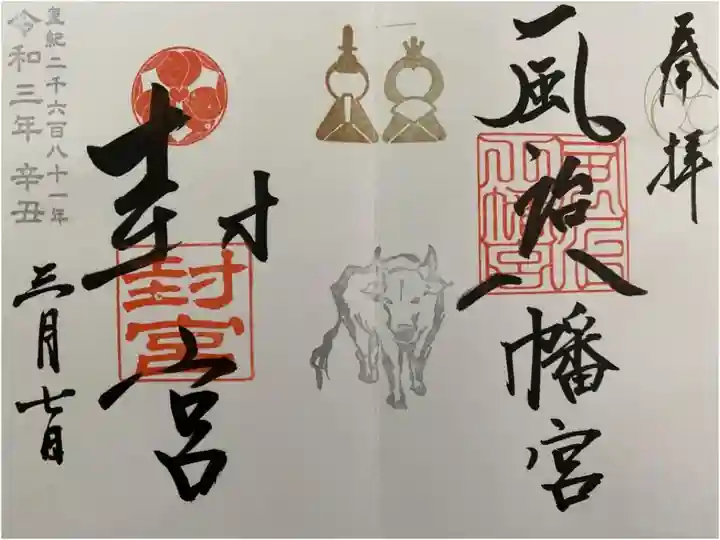 奉拝
風治八幡宮
風治八幡宮
封宮
封宮
皇紀二千六百八十一年
令和三年 辛丑
三月七日